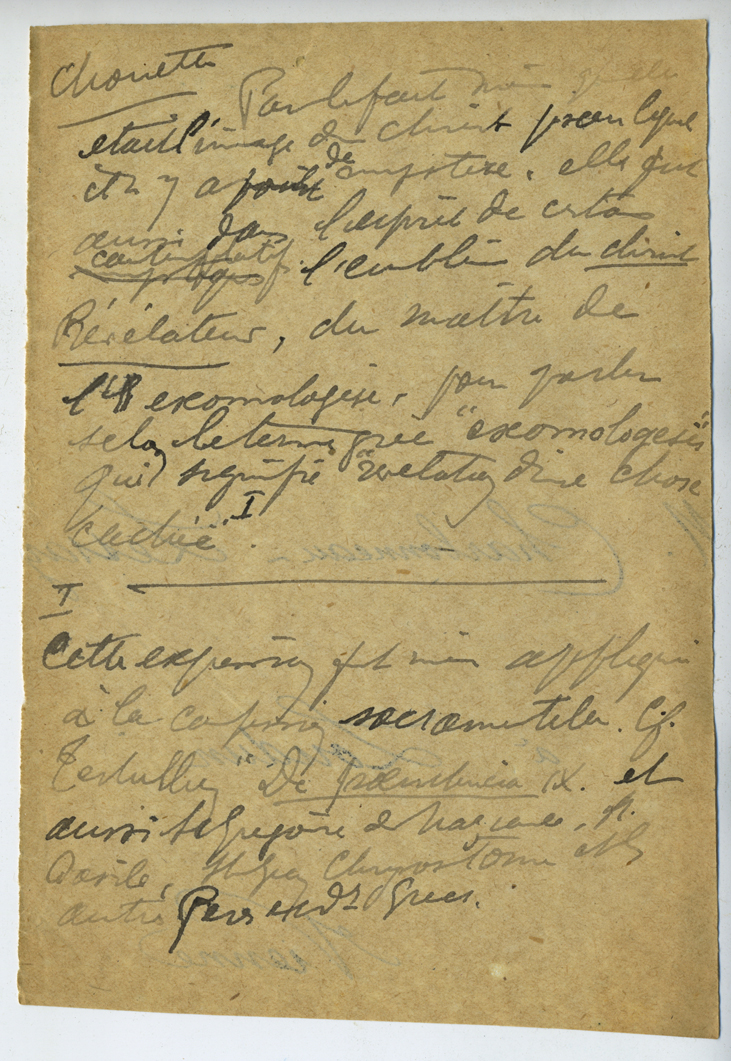 Chouette
Par le fait même qu'elle
était l'image du Christ pour lequel
il n'y a point de mystère, elle fut
aussi dans l'esprit de certains
contemplatifs l'emblême du Christ
Révélateur, du maître de
l'exomologèse, pour parler
selon le terme grec "exomologesis"
qui signifie "révélation d'une chose
cachée". I
I
Cette expression fut même appliquée
à la confession sacramentelle. Cf.
Tertullien De poenitencia IX. et
aussi St Grégoire de Nazianze, St.
Basile, St Jean Chrysostome et les
autres Pères Grecs.